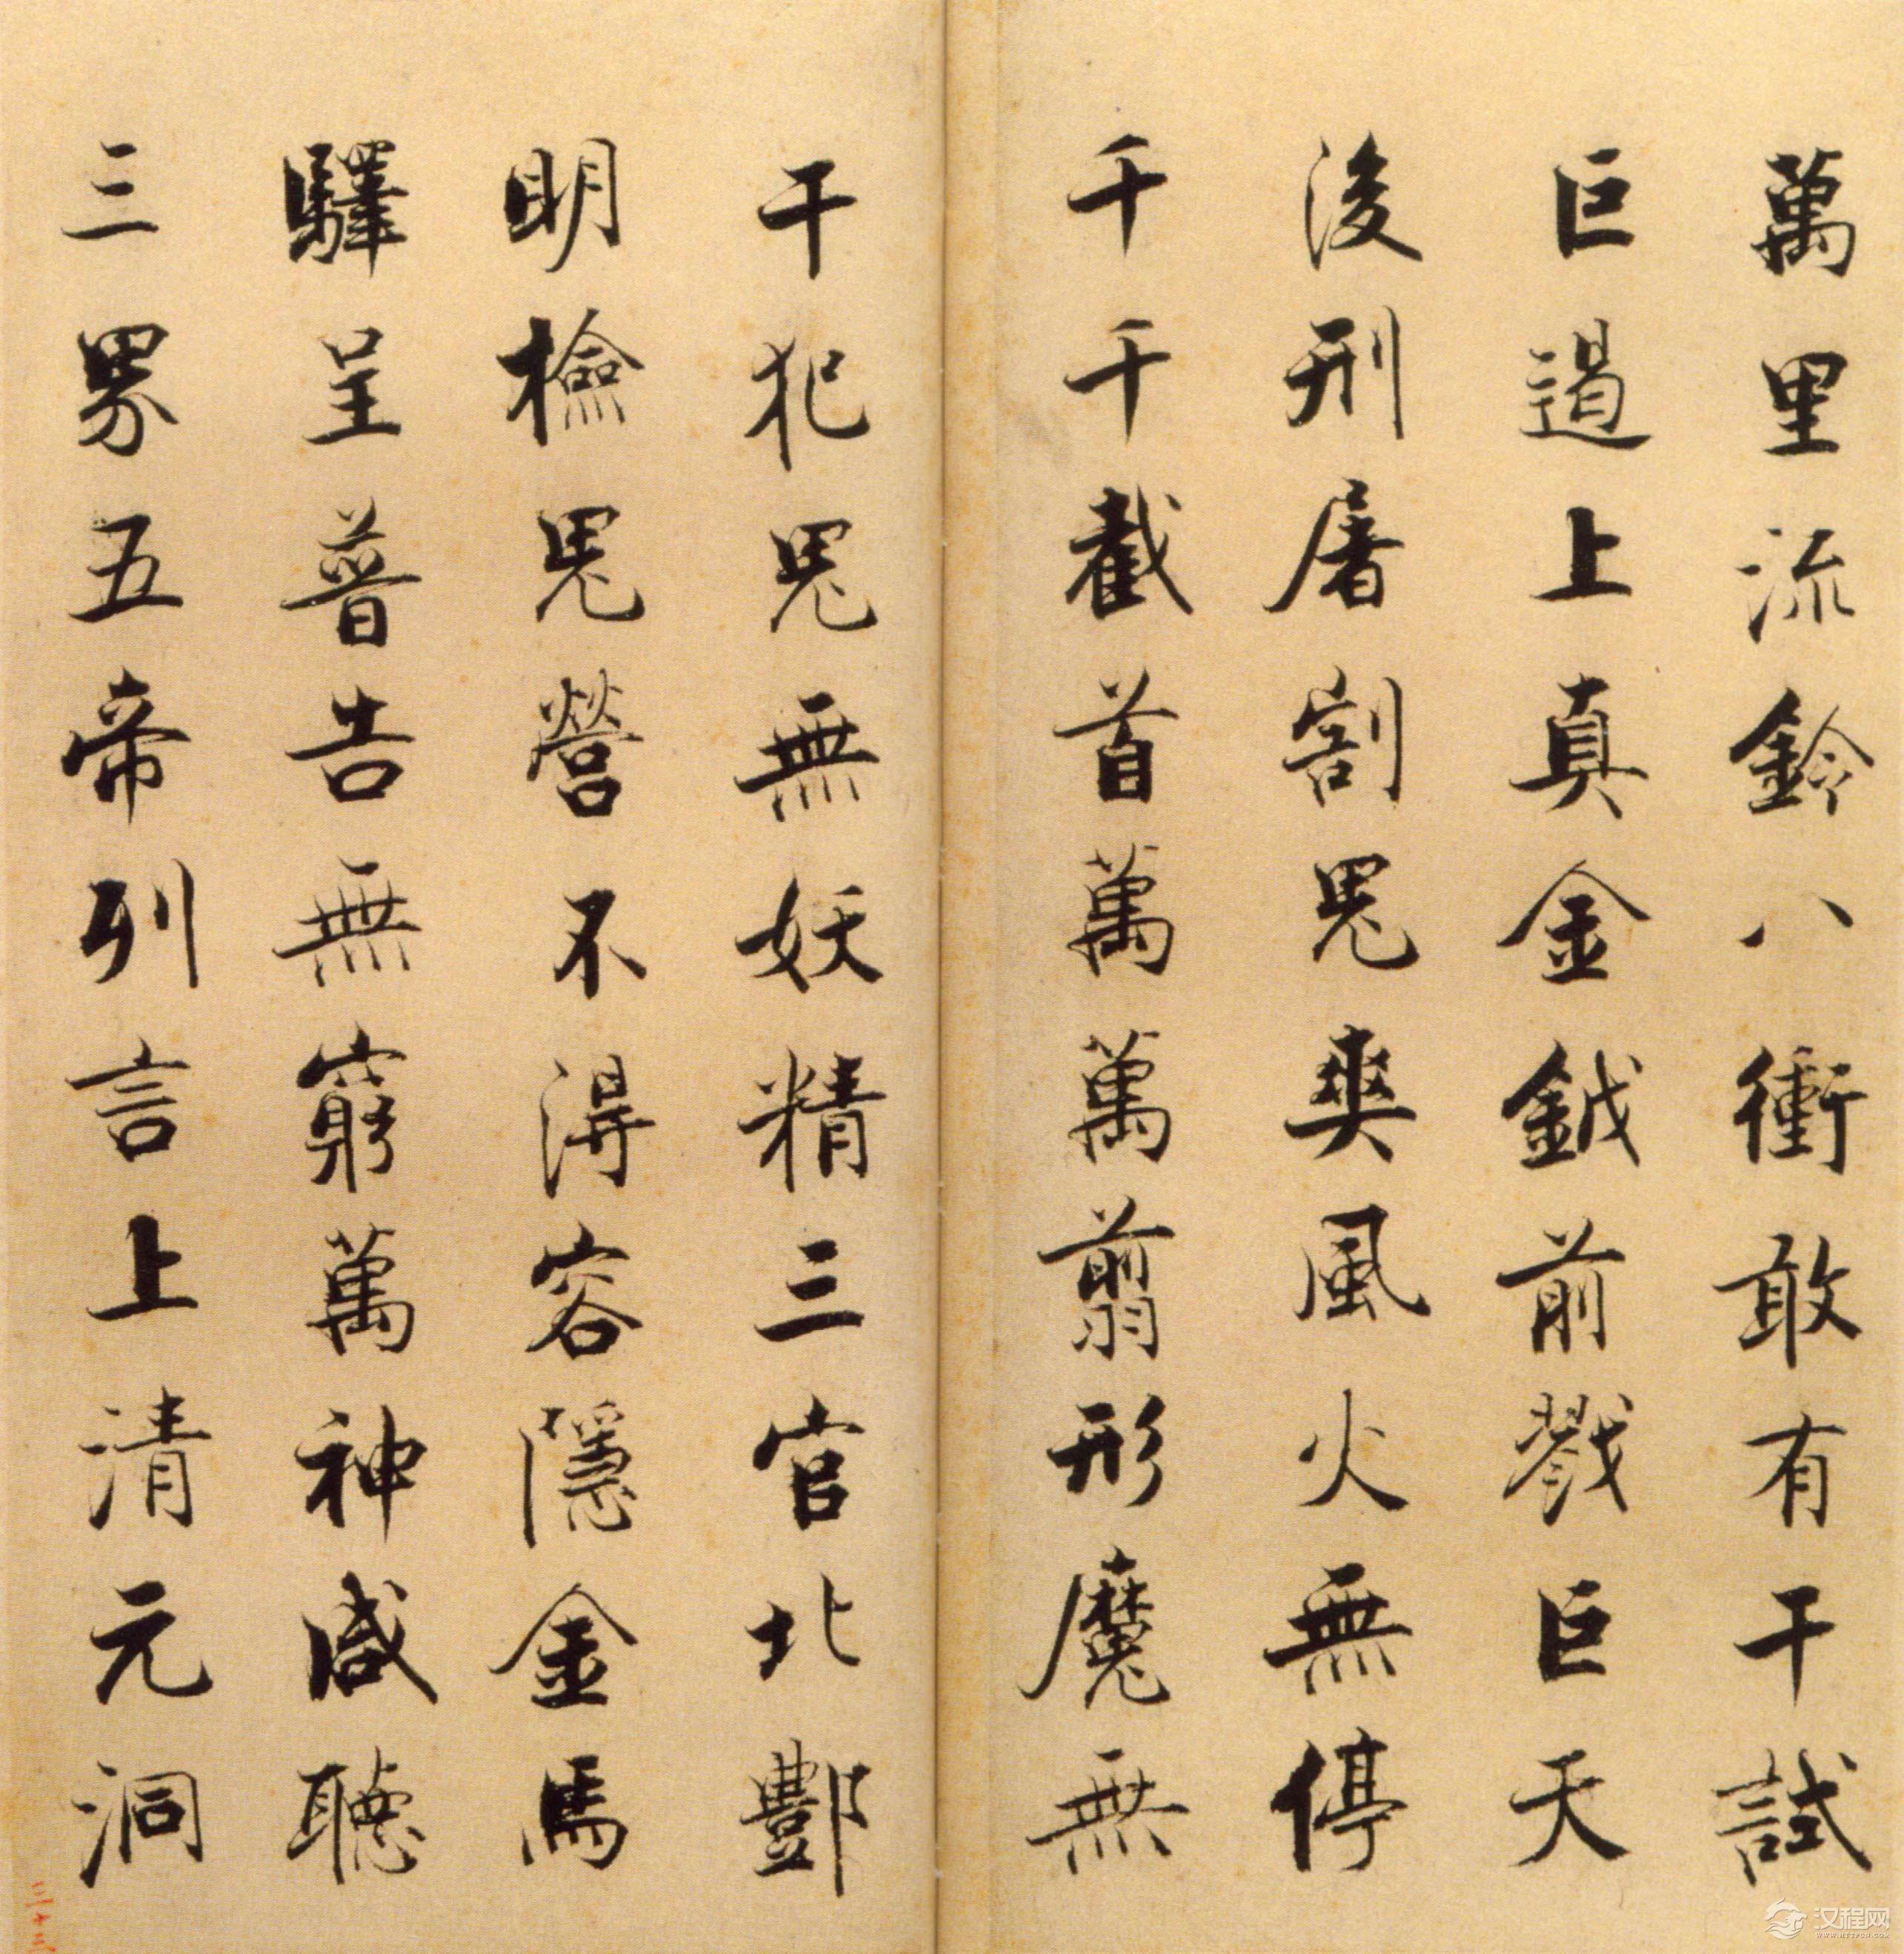 萬里流鈴八衝敢有干試
巨遏上真金鉞前戮巨天
後刑屠割鬼爽風火無停
千千截首萬萬翦形魔無
干犯鬼無妖精三官北酆
明檢鬼營不得容隱金馬
驛呈普告無窮萬神咸聽
三界五帝列言上清元洞
汉程网
WWW.HTTPCN.COM